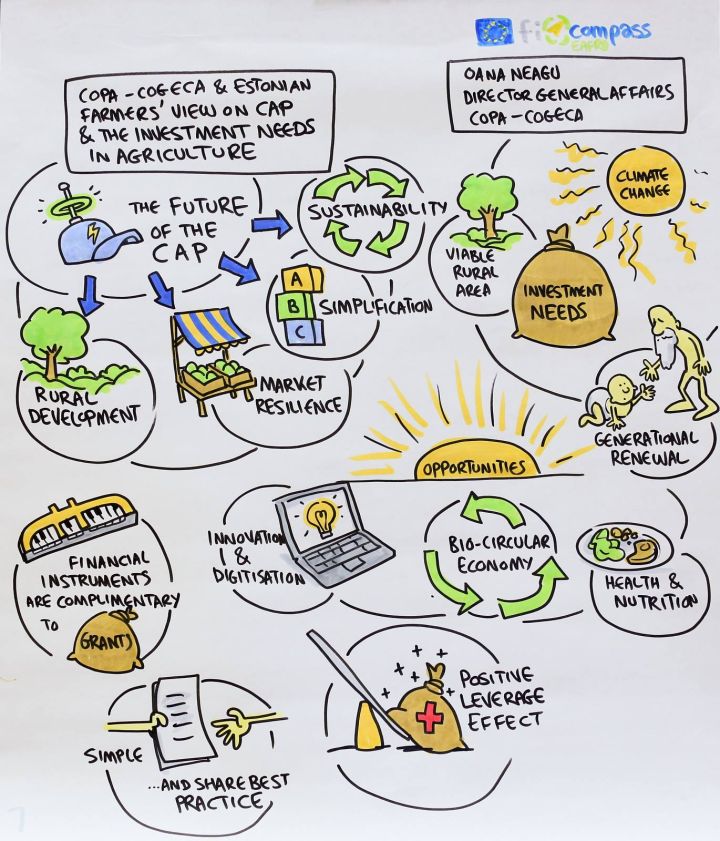 fi compass
EAFRD
COPA-COGECA & ESTONIAN
FARMERS' VIEW ON CAP
& THE INVESTMENT NEEDS
IN AGRICULTURE
OANA NEAGU
DIRECTOR GENERAL AFFAIRS
COPA-COGECA
THE FUTURE
OF THE
CAP
SUSTAINABILITY
A
B
C
SIMPLIFICATION
MARKET
RESILIENCE
RURAL
DEVELOPMENT
VIABLE
RURAL
AREA
CLIMATE
CHANGE
INVESTMENT
NEEDS
GENERATIONAL
RENEWAL
OPPORTUNITIES
INNOVATION
&
DIGITISATION
BIO-CIRCULAR
ECONOMY
HEALTH &
NUTRITION
FINANCIAL
INSTRUMENTS
ARE COMPLIMENTARY
TO
GRANTS
POSITIVE
LEVERAGE
EFFECT
SIMPLE
...AND SHARE BEST
PRACTICE